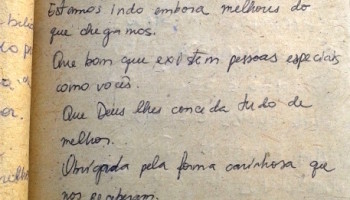 Estamos indo embora melhores do
que chegamos.
Que bom que existem pessoas especiais
como vocês.
Que Deus lhes conceda tudo de
melhor.
Obrigada pela forma carinhosa que
nos receberam.